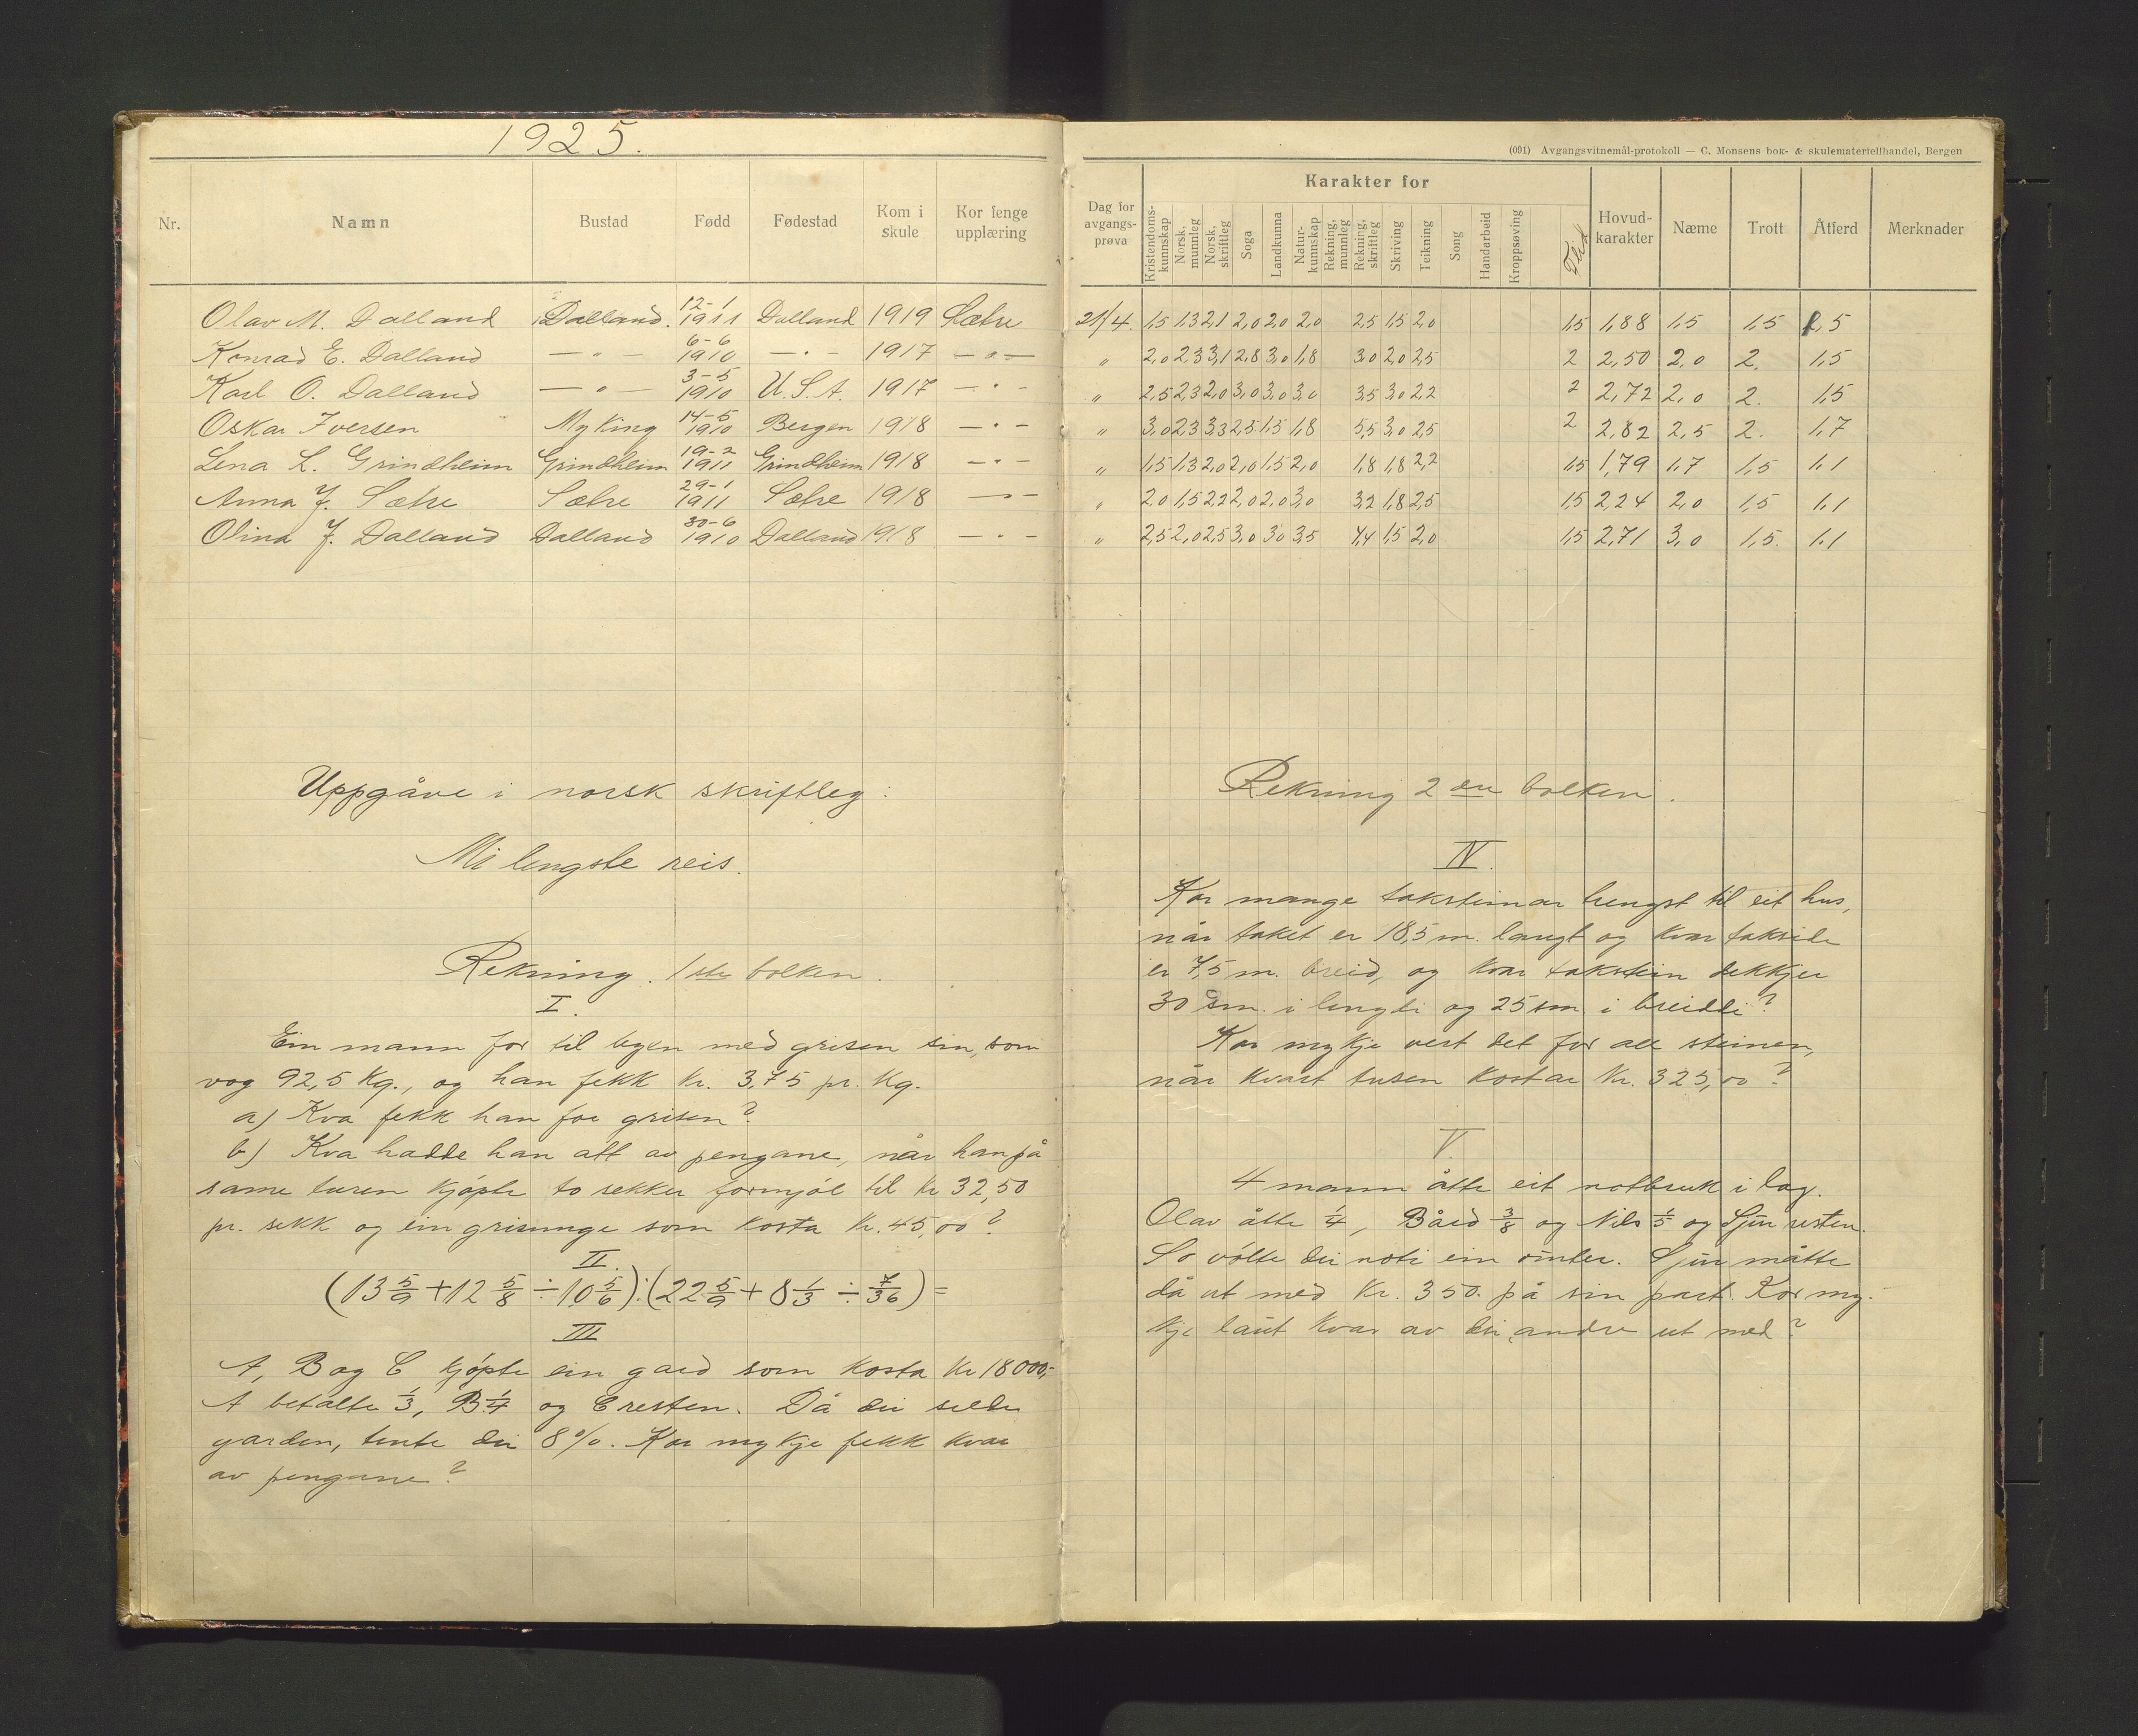 1925.
Nr. Namn Bustad Fødd Fødestad Kom i skule Kor fenge upplæring
Olav M. Dalland Dalland. 12-1 1911 Dalland 1919 Sætre
Konrad E. Dalland — " — 6-6 1910 — " — 1917 — " —
Karl O. Dalland — " — 3-5 1910 U.S.A. 1917 — " —
Oskar Iversen Myking 14-5 1910 Bergen 1918 — " —
Lena L. Grindheim Grindheim 19-2 1911 Grindheim 1918 — " —
Anna J. Sætre Sætre 29-1 1911 Sætre 1918 — " —
Olina J. Dalland Dalland 30-6 1910 Dalland 1918 — " —
Uppgåve i norsk skriftleg:
Mi lengste reis.
Rekning. 1ste bolken.
I.
Ein mann for til byen med grisen sin, som
vog 92,5 kg., og han fekk kr. 3,75 pr. kg.
a) Kva fekk han for grisen?
b) Kva hadde han att av pengane, når han på
same turen kjøpte to sekker formjøl til kr 32,50
pr. sekk og ein grisunge som kosta kr. 45,00?
II.
(13 5/9 + 12 5/8 ÷ 10 5/6) : (22 5/9 + 8 1/3 ÷ 7/36) =
III
A, B og C kjøpte ein gard som kosta kr 18000,-
A betalte 1/3, B 1/4 og C resten. Då dei selde
garden, tente dei 8%. Kor mykje fekk kvar
av pengane?
(091) Avgangsvitnemål-protokoll — C. Monsens bok- & skulemateriellhandel, Bergen
Karakter for
Dag for avgangs-prøva Kristendoms-kunnskap Norsk, munnleg Norsk, skriftleg Soga Landkunna Natur-kunnskap Rekning, munnleg Rekning, skriftleg Skriving Teikning Song Handarbeid Kroppsøving Flid Hovud-karakter Næme Trott Åtferd Merknader
21/4. 1,5 1,3 2,1 2,0 2,0 2,0 2,5 1,5 2,0 1,5 1,88 1,5 1,5 1,5
" 2,0 2,3 3,1 2,8 3,0 1,8 3,0 2,0 2,5 2 2,50 2,0 2. 1,5
" 2,5 2,3 2,0 3,0 3,0 3,0 3,5 3,0 2,2 2 2,72 2,0 2. 1,5
" 3,0 2,3 3,3 2,5 1,5 1,8 5,5 3,0 2,5 2 2,82 2,5 2. 1,7
" 1,5 1,3 2,0 2,0 1,5 2,0 1,8 1,8 2,2 1,5 1,79 1,7 1,5 1,1
" 2,0 1,5 2,2 2,0 2,0 3,0 3,2 1,8 2,5 1,5 2,24 2,0 1,5 1,1
" 2,5 2,0 2,5 3,0 3,0 3,5 4,4 1,5 2,0 1,5 2,71 3,0 1,5. 1,1
Rekning 2den bolken.
IV.
Kor mange taksteinar trengst til eit hus,
når taket er 18,5 m. langt og kvar takside
er 7,5 m. breid, og kvar takstein dekkjer
30 sm. i lengdi og 25 sm i breiddi?
Kor mykje vert det for all steinen,
når kvart tusen kostar kr. 325,00?
V.
4 mann åtte eit notbruk i lag.
Olav åtte 1/4, Bård 3/8 og Nils 1/5 og Sjur resten.
So vølte dei noti ein vinter. Sjur måtte
då ut med kr. 350. på sin part. Kor my-
kje laut kvar av dei andre ut med?